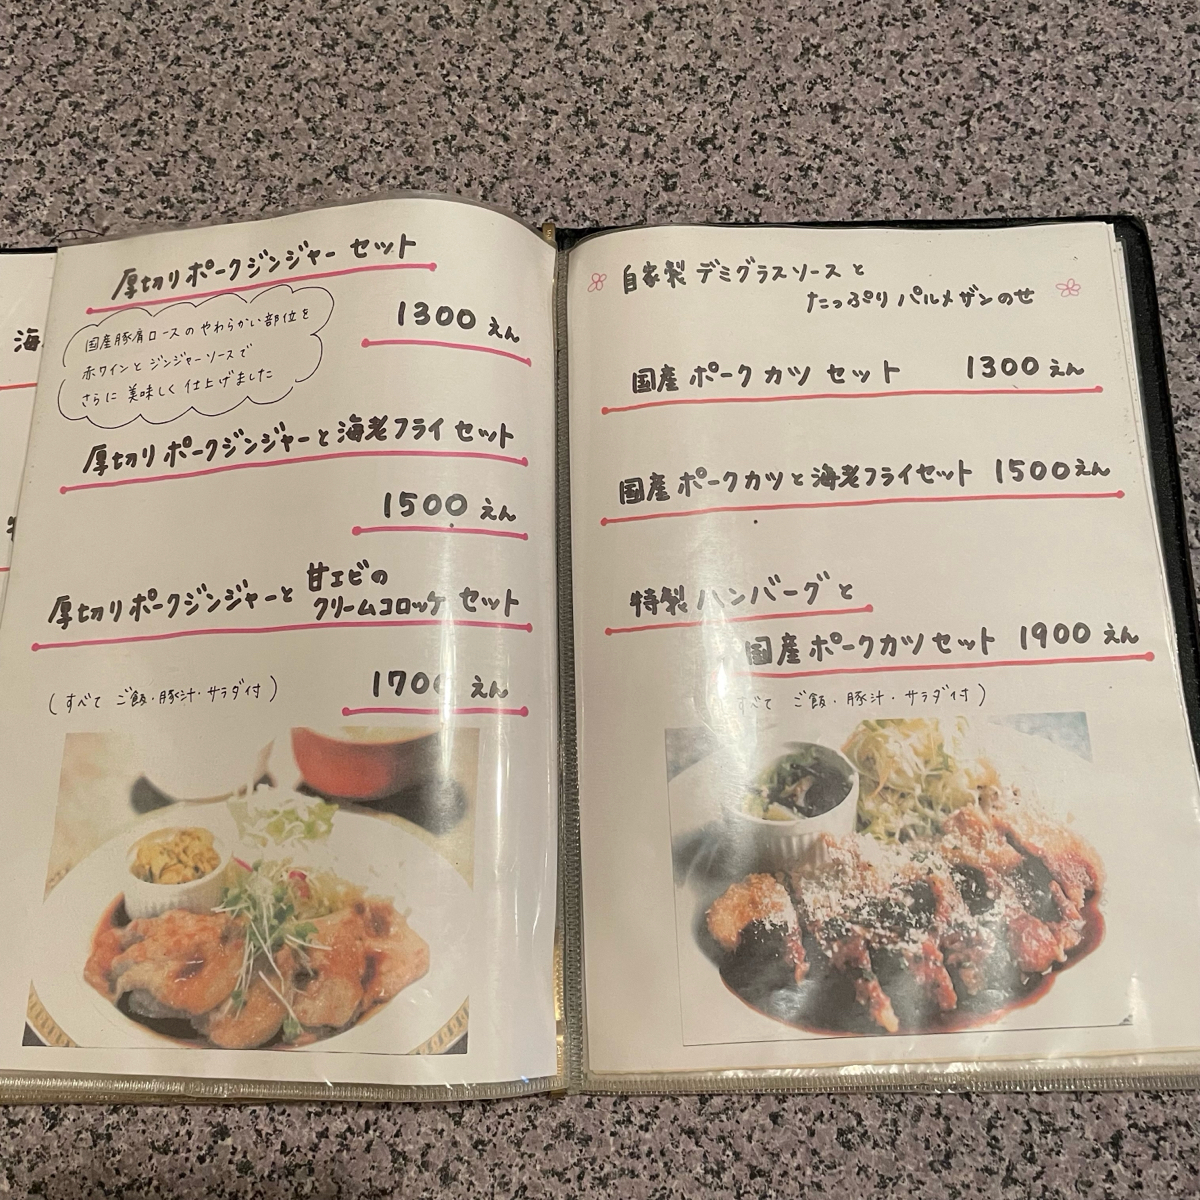 海
厚切りポークジンジャー セット
1300 えん
国産豚肩ロースのやわらかい部位を
赤ワインと ジンジャーソースで
さらに 美味しく 仕上げました
厚切りポークジンジャーと海老フライ セット
1500 えん
厚切りポークジンジャーと 甘エビの
クリームコロッケ セット
1700 えん
(すべて ご飯・豚汁・サラダ付)
自家製 デミグラスソース と
たっぷり パルメザンのせ
国産 ポーク カツ セット 1300 えん
国産 ポークカツと海老フライセット 1500えん
特製 ハンバーグ と
国産 ポークカツ セット 1900 えん
すべて ご飯・豚汁・サラダ付)